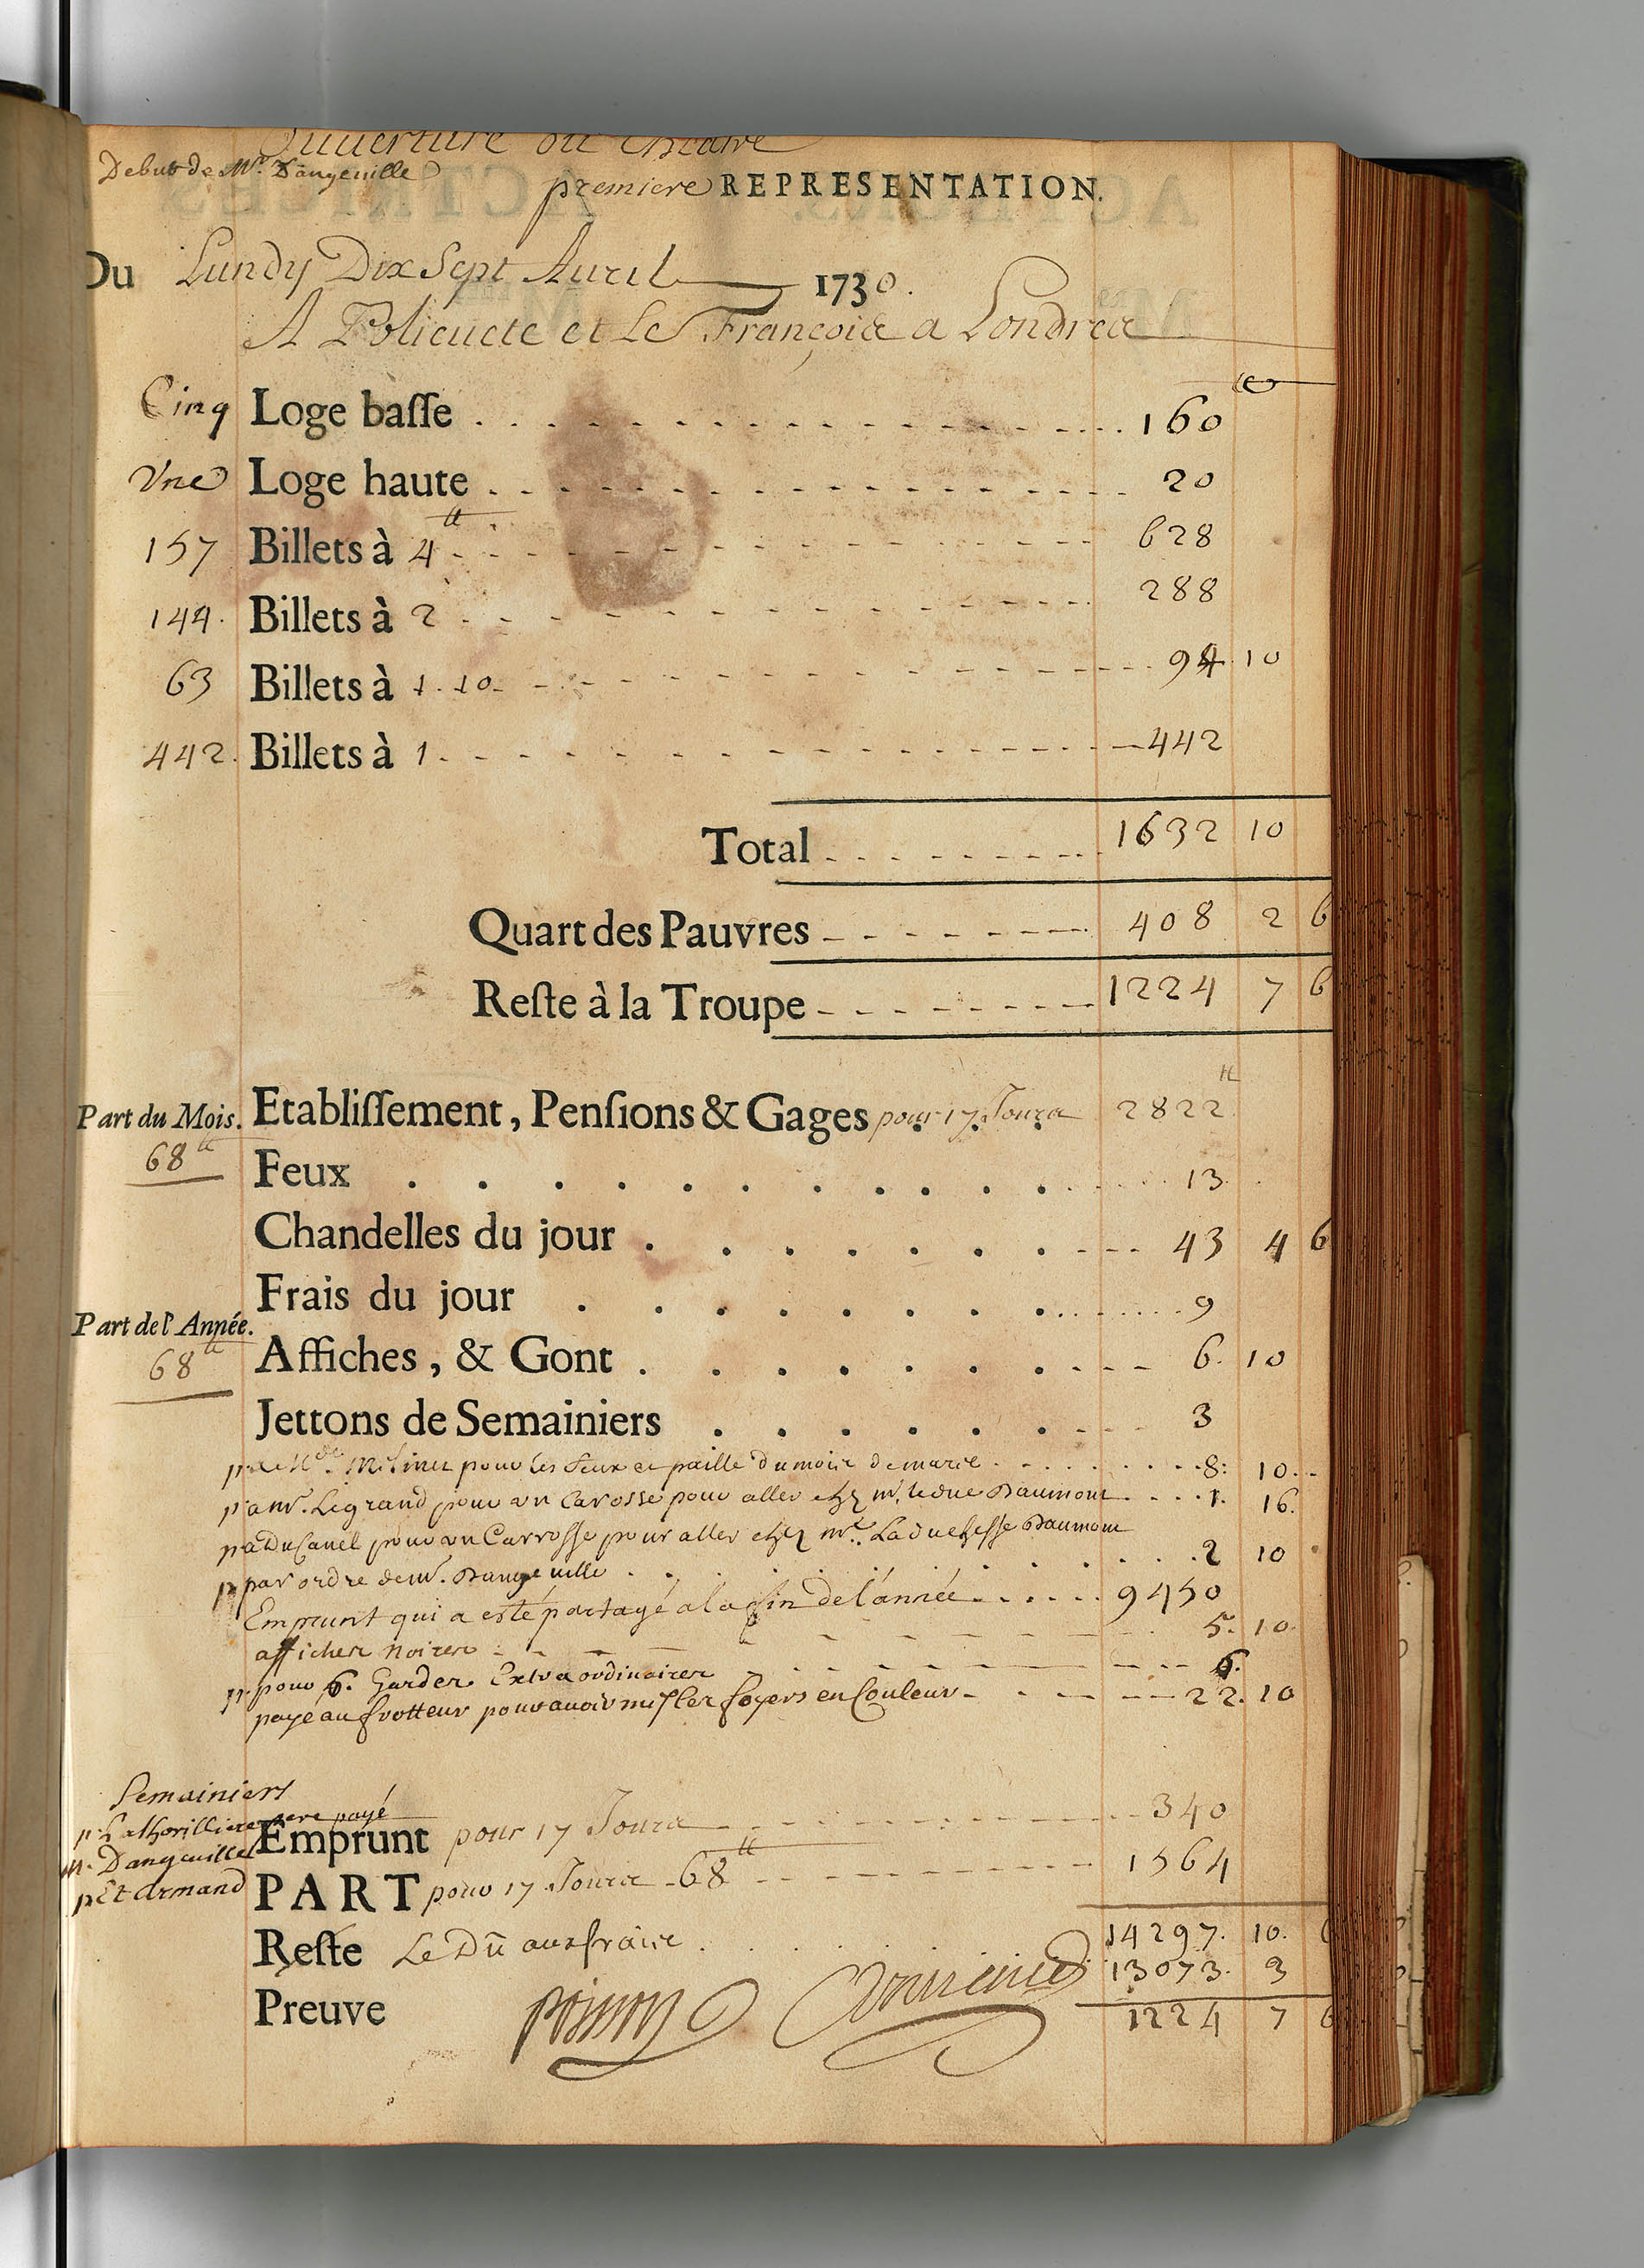 Ouverture du théatre
Debut de Mr. Dangeville
premiere REPRESENTATION.
Du Lundy Dix Sept Avril 1730.
A Polieucte et Le François a Londres
Cinq Loge basse 160
Vne Loge haute 20
157 Billets à 4tt 628
144. Billets à 2 288
63 Billets à 1.10 94 10
442. Billets à 1 442
Total 1632 10
Quart des Pauvres 408 2 6
Reste à la Troupe 1224 7 6
Part du Mois. Etablissement, Pensions & Gages pour 17 Jours 2822tt
68tt Feux 13
Chandelles du jour 43 4 6
Frais du jour 9
Part de l'Année.
68tt Affiches, & Gont 6. 10
Jettons de Semainiers 3
pour les feux et paille du mois de mars 8: 10
p. a mr. Legrand pour un Carosse pour aller chez mr. le duc Daumont 1. 16.
p. a Ducanel pour un Carrosse pour aller chez me. La duchesse Daumont
p. par ordre de mr. Dangeville 2 10
Emprunt qui a esté partagé a la fin de l'année 9450
affiches noires 5. 10
p. pour 6. Gardes Extraordinaires 6.
payé au frotteur pour avoir mis les foyers en Couleur 22. 10
Semainiers
p. Lathorilliere pere payé
Emprunt pour 17 Jours 340
m. Dangeville
PART pour 17 Jours 68tt 1564
p. Et Armand
Reste Le Dû aux frais 14297. 10. 6
13073. 3
Preuve 1224 7 6
poisson